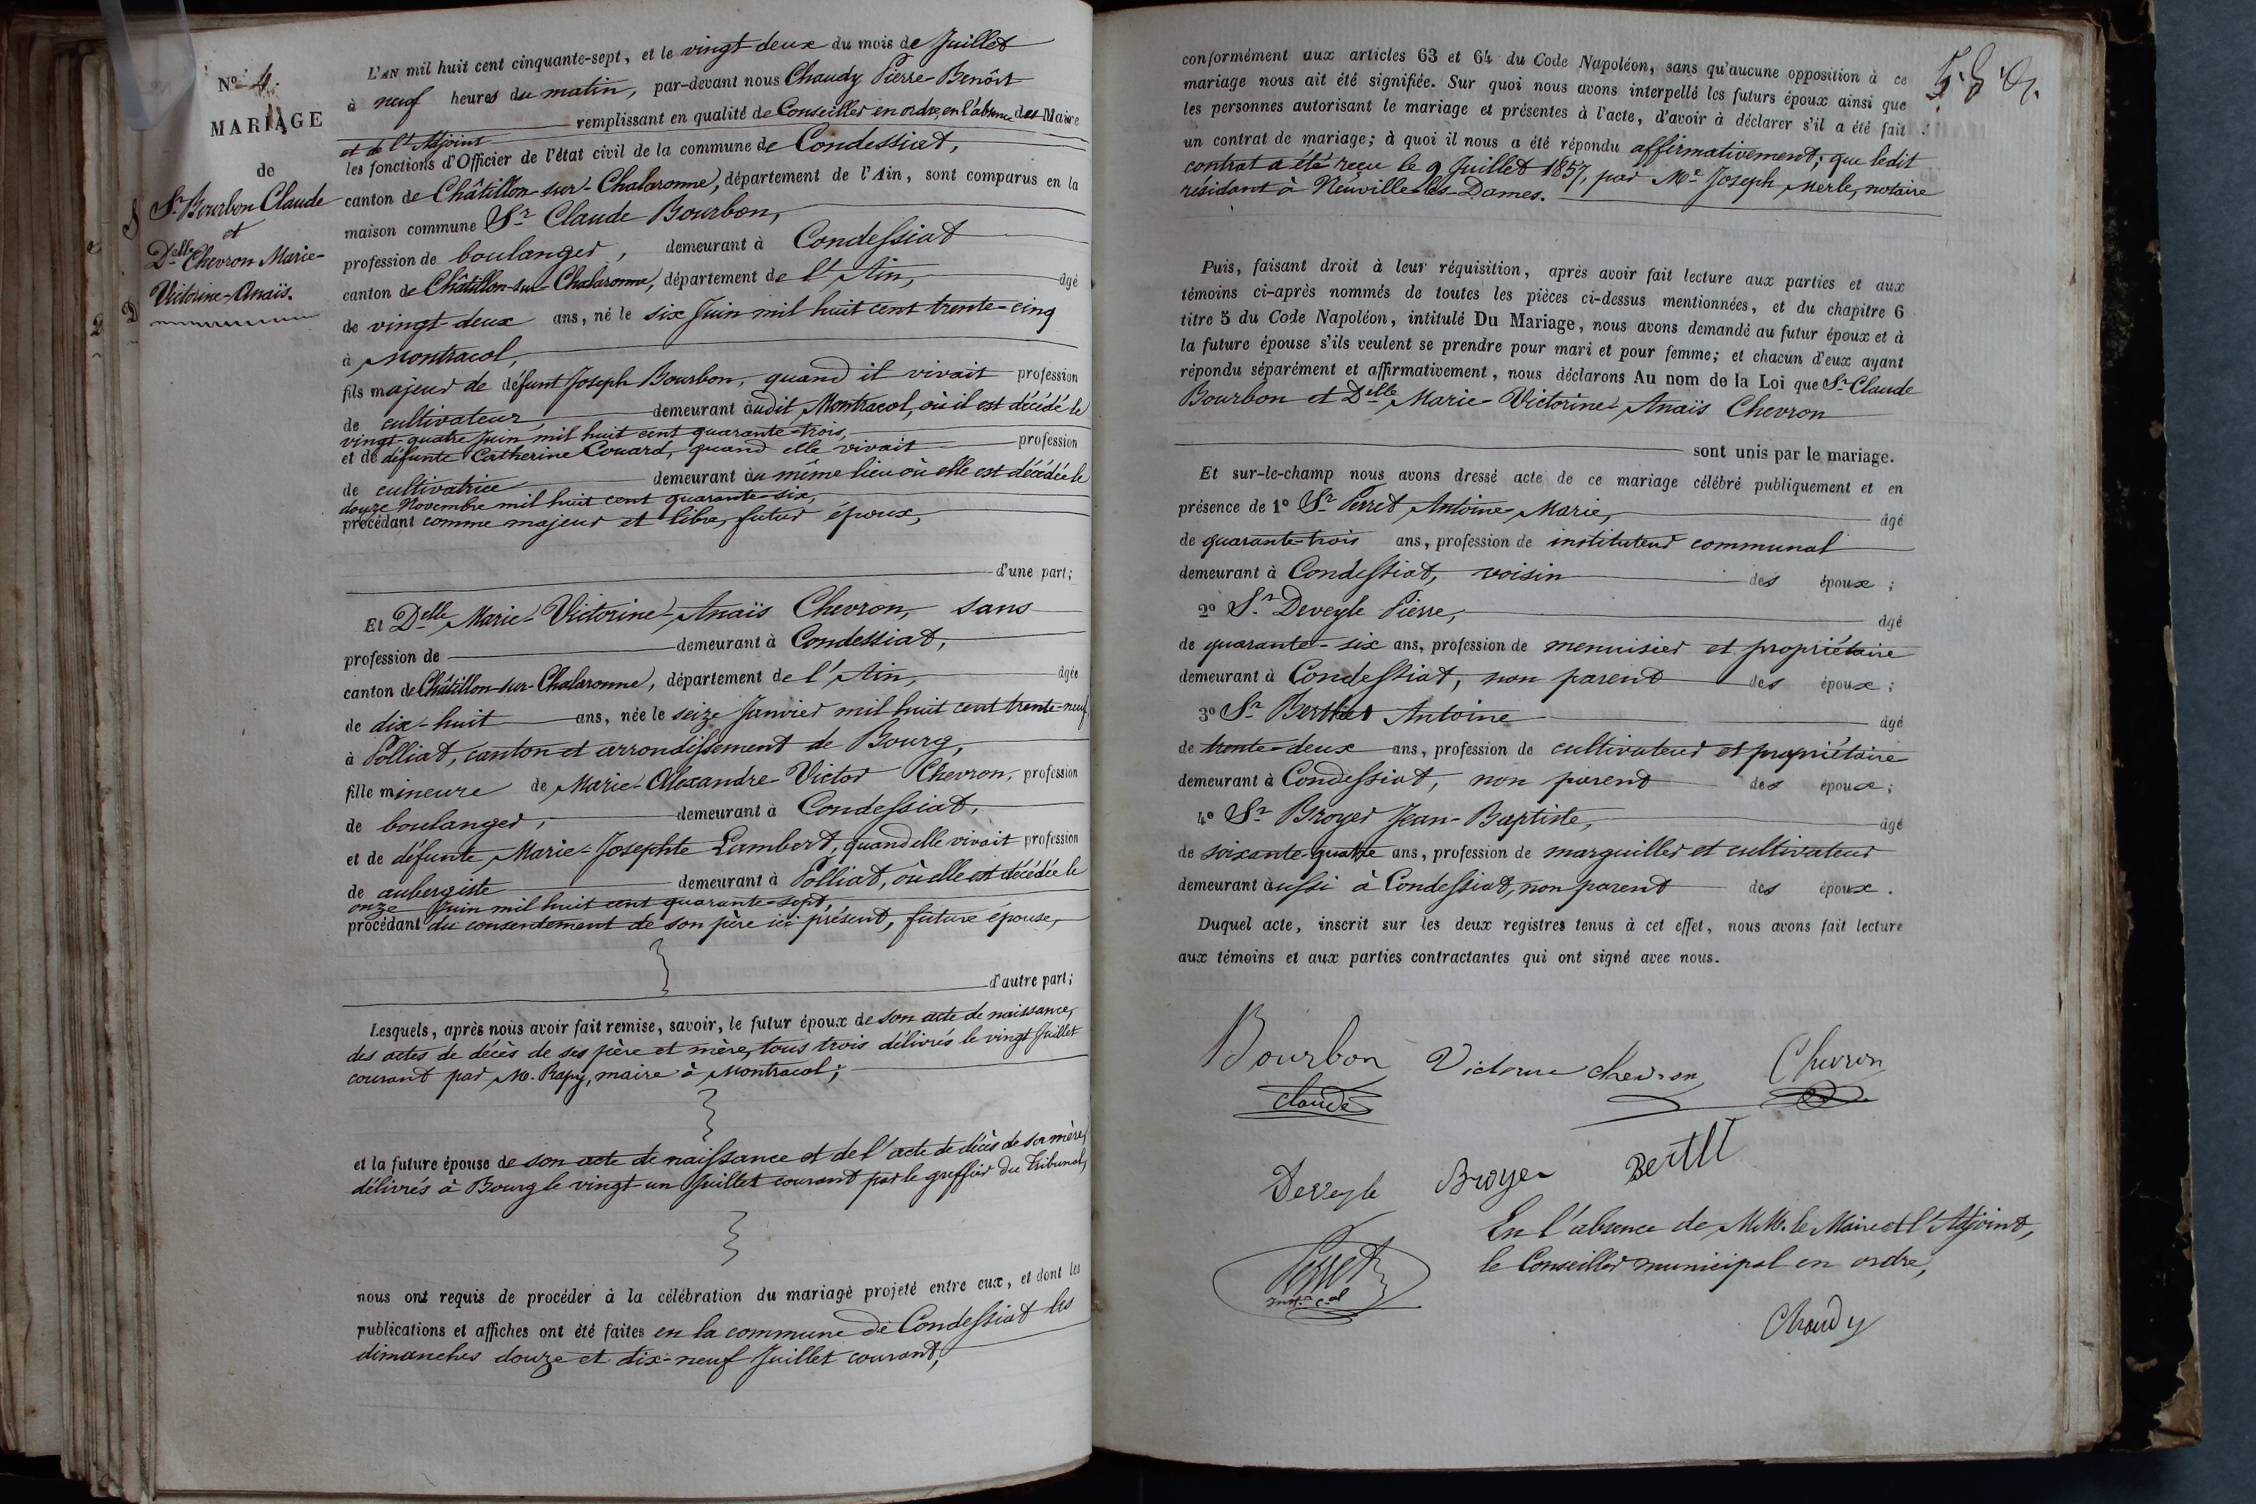 N° 4.
MARIAGE
de
Sr. Bourbon Claude
et
Delle Chevron Marie-
Victorine-Anaïs.
L'AN mil huit cent cinquante-sept, et le vingt deux du mois de Juillet
à neuf heures du matin, par-devant nous Chaudy Pierre-Benoît
remplissant en qualité de Conseiller en ordre, en l'absence des Maire
et de l'Adjoint
les fonctions d'Officier de l'état civil de la commune de Condessiat,
canton de Châtillon-sur-Chalaronne, département de l'Ain, sont comparus en la
maison commune Sr. Claude Bourbon,
profession de boulanger, demeurant à Condessiat
canton de Châtillon-sur-Chalaronne, département de l'Ain, âgé
de vingt-deux ans, né le six Juin mil huit cent trente-cinq
à Montracol,
fils majeur de défunt Joseph Bourbon, quand il vivait profession
de cultivateur demeurant audit Montracol, où il est décédé le
vingt-quatre Juin mil huit cent quarante-trois,
et de défunte Catherine Couard, quand elle vivait profession
de cultivatrice demeurant au même lieu où elle est décédée le
douze Novembre mil huit cent quarante-six,
précédant comme majeur et libre, futur époux,
d'une part;
Et Delle Marie-Victorine-Anaïs Chevron, sans
profession de demeurant à Condessiat,
canton de Châtillon-sur-Chalaronne, département de l'Ain, âgée
de dix-huit ans, née le seize Janvier mil huit cent trente-neuf
à Polliat, canton et arrondissement de Bourg,
fille mineure de Marie-Alexandre-Victor Chevron, profession
de boulanger, demeurant à Condessiat,
et de défunte Marie-Josephte Lambert, quand elle vivait profession
de aubergiste demeurant à Polliat, où elle est décédée le
onze Juin mil huit cent quarante-sept,
procédant du consentement de son père ici présent, future épouse,
d'autre part;
Lesquels, après nous avoir fait remise, savoir, le futur époux de son acte de naissance,
des actes de décès de ses père et mère, tous trois délivrés le vingt Juillet
courant par M. Rapy, maire à Montracol;
et la future épouse de son acte de naissance et de l'acte de décès de sa mère,
délivrés à Bourg le vingt-un Juillet courant par le greffier du Tribunal,
nous ont requis de procéder à la célébration du mariage projeté entre eux, et dont les
publications et affiches ont été faites en la commune de Condessiat les
dimanches douze et dix-neuf Juillet courant,
conformément aux articles 63 et 64 du Code Napoléon, sans qu'aucune opposition à ce
mariage nous ait été signifiée. Sur quoi nous avons interpellé les futurs époux ainsi que
les personnes autorisant le mariage et présentes à l'acte, d'avoir à déclarer s'il a été fait
un contrat de mariage; à quoi il nous a été répondu affirmativement; que ledit
contrat a été reçu le 9 Juillet 1857, par Me. Joseph Merle, notaire
résidant à Neuville-les-Dames.
Puis, faisant droit à leur réquisition, après avoir fait lecture aux parties et aux
témoins ci-après nommés de toutes les pièces ci-dessus mentionnées, et du chapitre 6
titre 5 du Code Napoléon, intitulé Du Mariage, nous avons demandé au futur époux et à
la future épouse s'ils veulent se prendre pour mari et pour femme; et chacun d'eux ayant
répondu séparément et affirmativement, nous déclarons Au nom de la Loi que Sr. Claude
Bourbon et Delle Marie-Victorine-Anaïs Chevron
sont unis par le mariage.
Et sur-le-champ nous avons dressé acte de ce mariage célébré publiquement et en
présence de 1° Sr. Perret Antoine-Marie, âgé
de quarante-trois ans, profession de instituteur communal
demeurant à Condessiat, voisin des époux;
2° Sr. Deveyle Pierre, âgé
de quarante-six ans, profession de menuisier et propriétaire
demeurant à Condessiat, non parent des époux;
3° Sr. Berthet Antoine âgé
de trente-deux ans, profession de cultivateur et propriétaire
demeurant à Condessiat, non parent des époux;
4° Sr. Broyer Jean-Baptiste, âgé
de soixante-quatre ans, profession de marguiller et cultivateur
demeurant aussi à Condessiat, non parent des époux.
Duquel acte, inscrit sur les deux registres tenus à cet effet, nous avons fait lecture
aux témoins et aux parties contractantes qui ont signé avec nous.
Bourbon Victorine chevron Chevron
Claude
Deveyle Broyer Bertet
Perret
Instr. cal
En l'absence de MM. le Maire et l'Adjoint,
le Conseiller municipal en ordre,
Chaudy